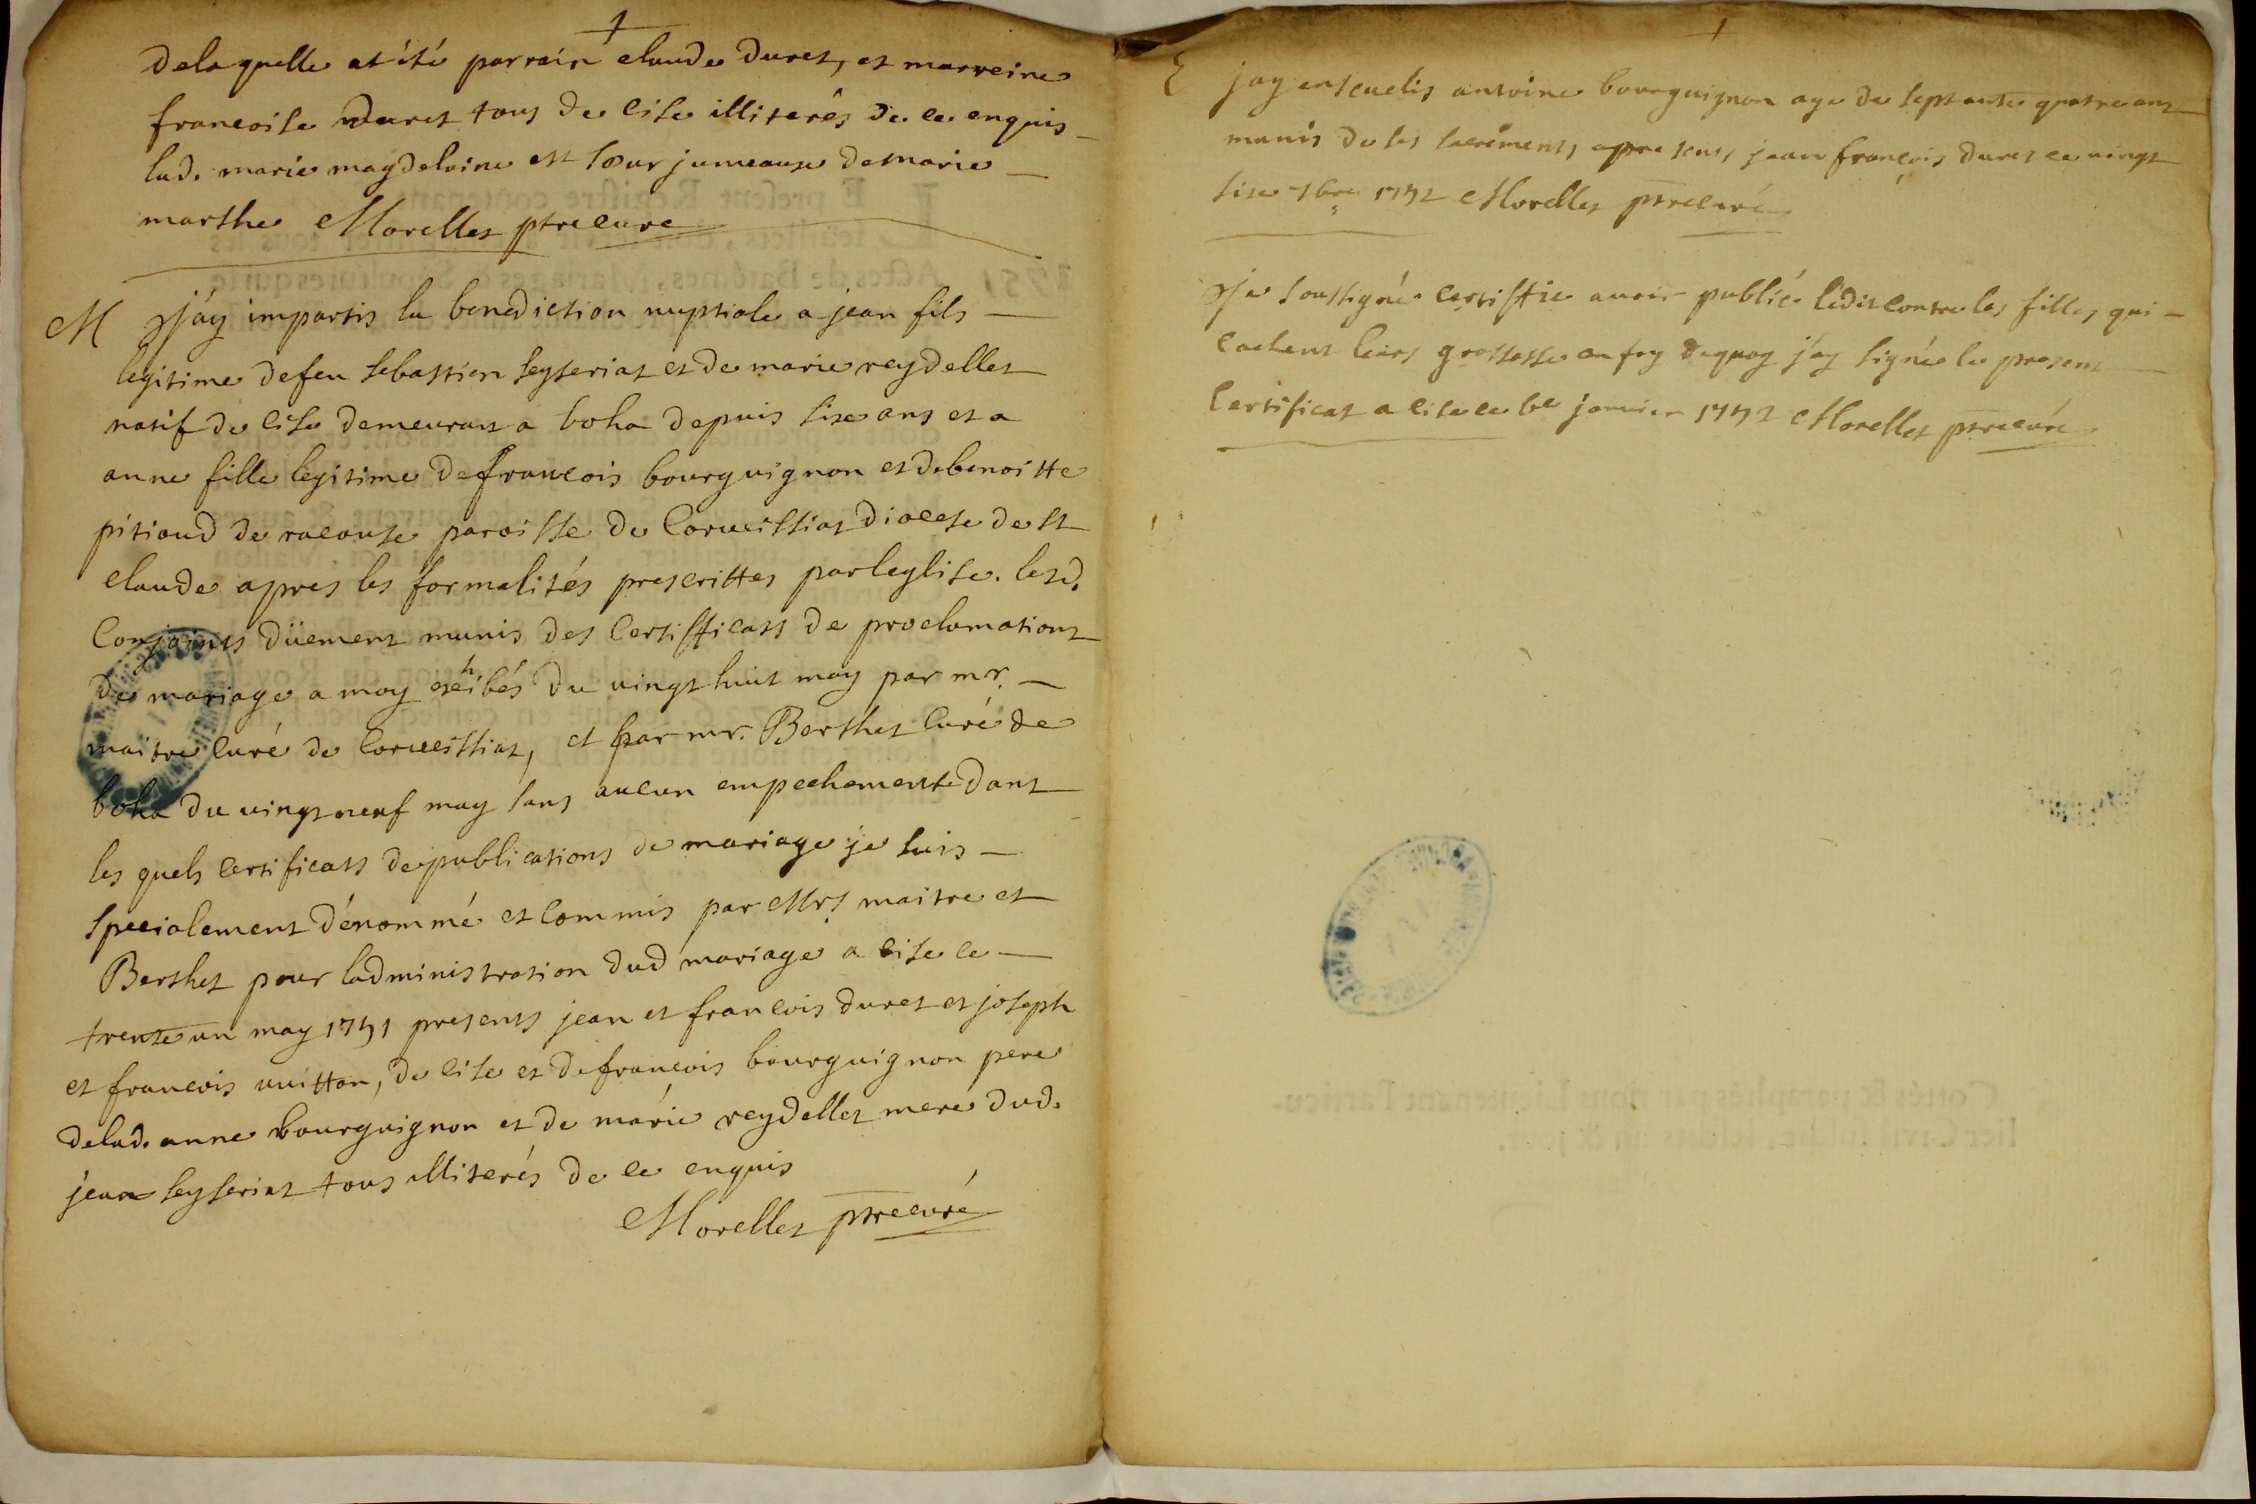 delaquelle at été parrain claude duret, et marreine
francoise duret tous de cise illiterés de ce enquis
lad. marie magdelaine est sœur jumeause de marie
marthe Morellet ptre curé
M J'ay impartis la benediction nuptiale a jean fils
legitime de feu sebastien seyseriat et de marie reydellet
natif de cise demeurant a boha depuis sixe ans et a
anne fille legitime de francois bourguignon et de benoitte
pitioud de racouse paroisse de Corveissiat diocese de st
claude apres les formalités prescrittes par leglise. lesd.
Conjoints düement munis des Certifficats de proclamations
de mariage a moy exhibés du vingt huit may par mr.
maitre curé de Corveissiat, et par mr. Berthet Curé de
boha du vingt neuf may sans aucun empechement dans
les quels certificats de publications de mariage je suis
specialement dénommé et Commis par Mrs maitre et
Berthet pour ladministration dud mariage a cise ce
trente un may 1751 presents jean et francois duret et joseph
et francois vuitton, de cise et de francois bourguignon pere
de lad. anne bourguignon et de marie reydellet mere dud.
jean seyseriat tous illiterés de ce enquis
Morellet ptre curé
E jay ensevelis antoine bourguignon age de septante quatre ans
munis de ses sacrements, presents jean francois duret ce vingt
sixe 7bre 1752 Morellet ptre curé
Je soussigné certiffie avoir publié lédit contre les filles qui
cachent leurs grossesse en foy dequoy j'ay signé le present
Certificat a cise ce janvier 1752 Morellet ptre curé